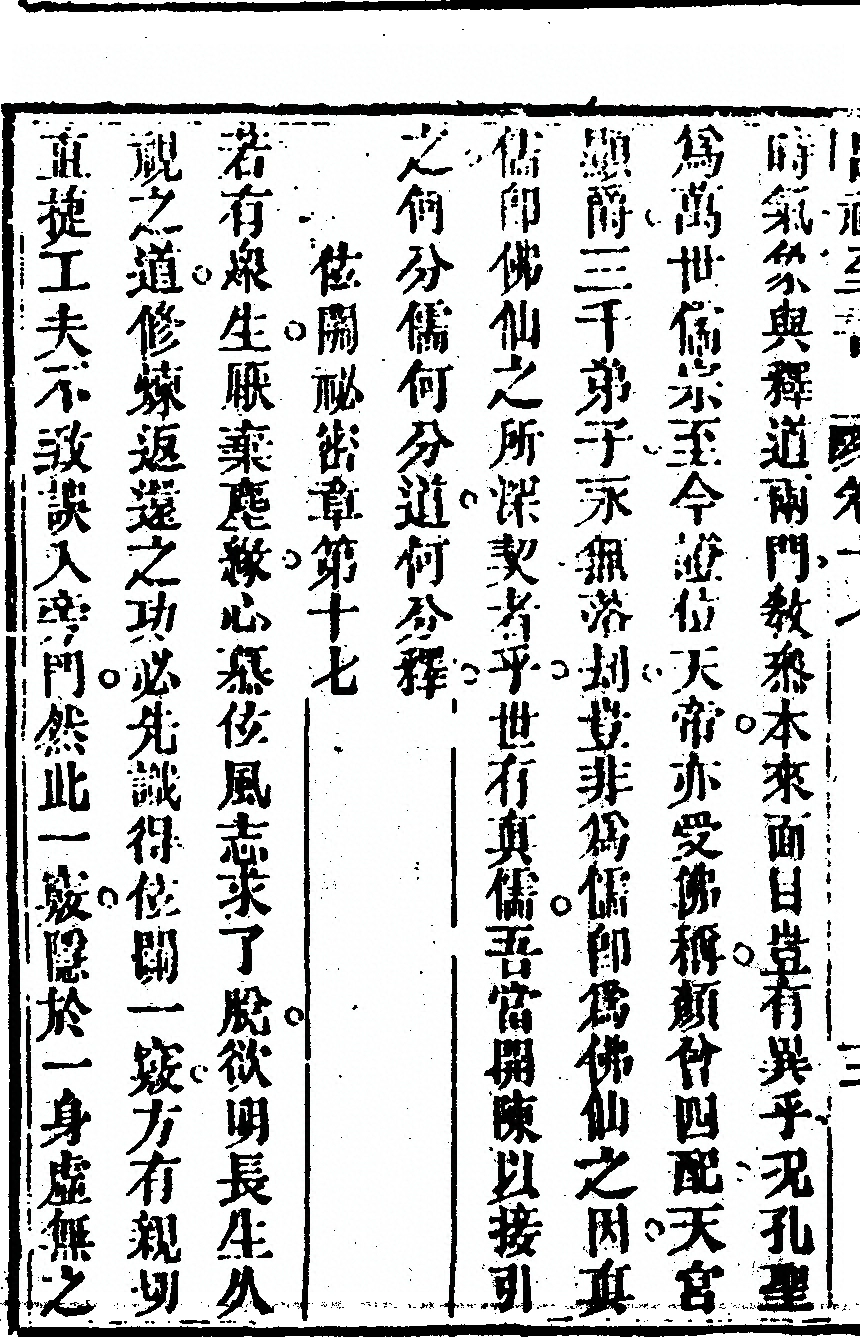 時氣象與釋道兩門教衆本來面目豈有異乎况孔聖
爲萬世儒宗至今證位天帝亦受佛稱顏曾四配天宮
顯爵三千弟子永無落刧豈非爲儒卽爲佛仙之因真
儒卽佛仙之所深契者乎世有真儒吾當開陳以接引
之何分儒何分道何分釋
㑀關秘密章第十七
若有衆生厭棄塵緣心慕㑀風志求了脫欲明長生久
視之道修煉返還之功必先識得㑀關一竅方有親切
直捷工夫不致誤入旁門然此一竅隱於一身虛無之